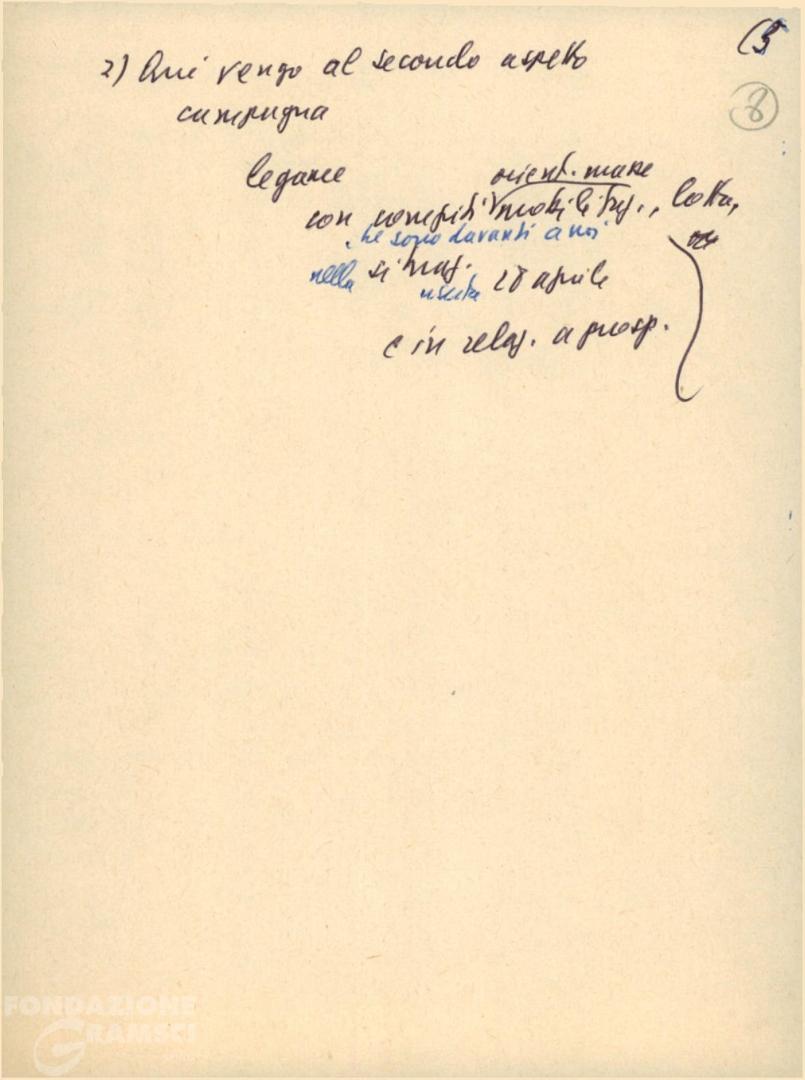 (5
8
2) Qui vengo al secondo aspetto
campagna
legame
orient. masse
con compiti mobilitaz., lotta,
che sono davanti a noi
nella situaz.
uscita 28 aprile
e in relaz. a prosp.
FONDAZIONE
GRAMSCI